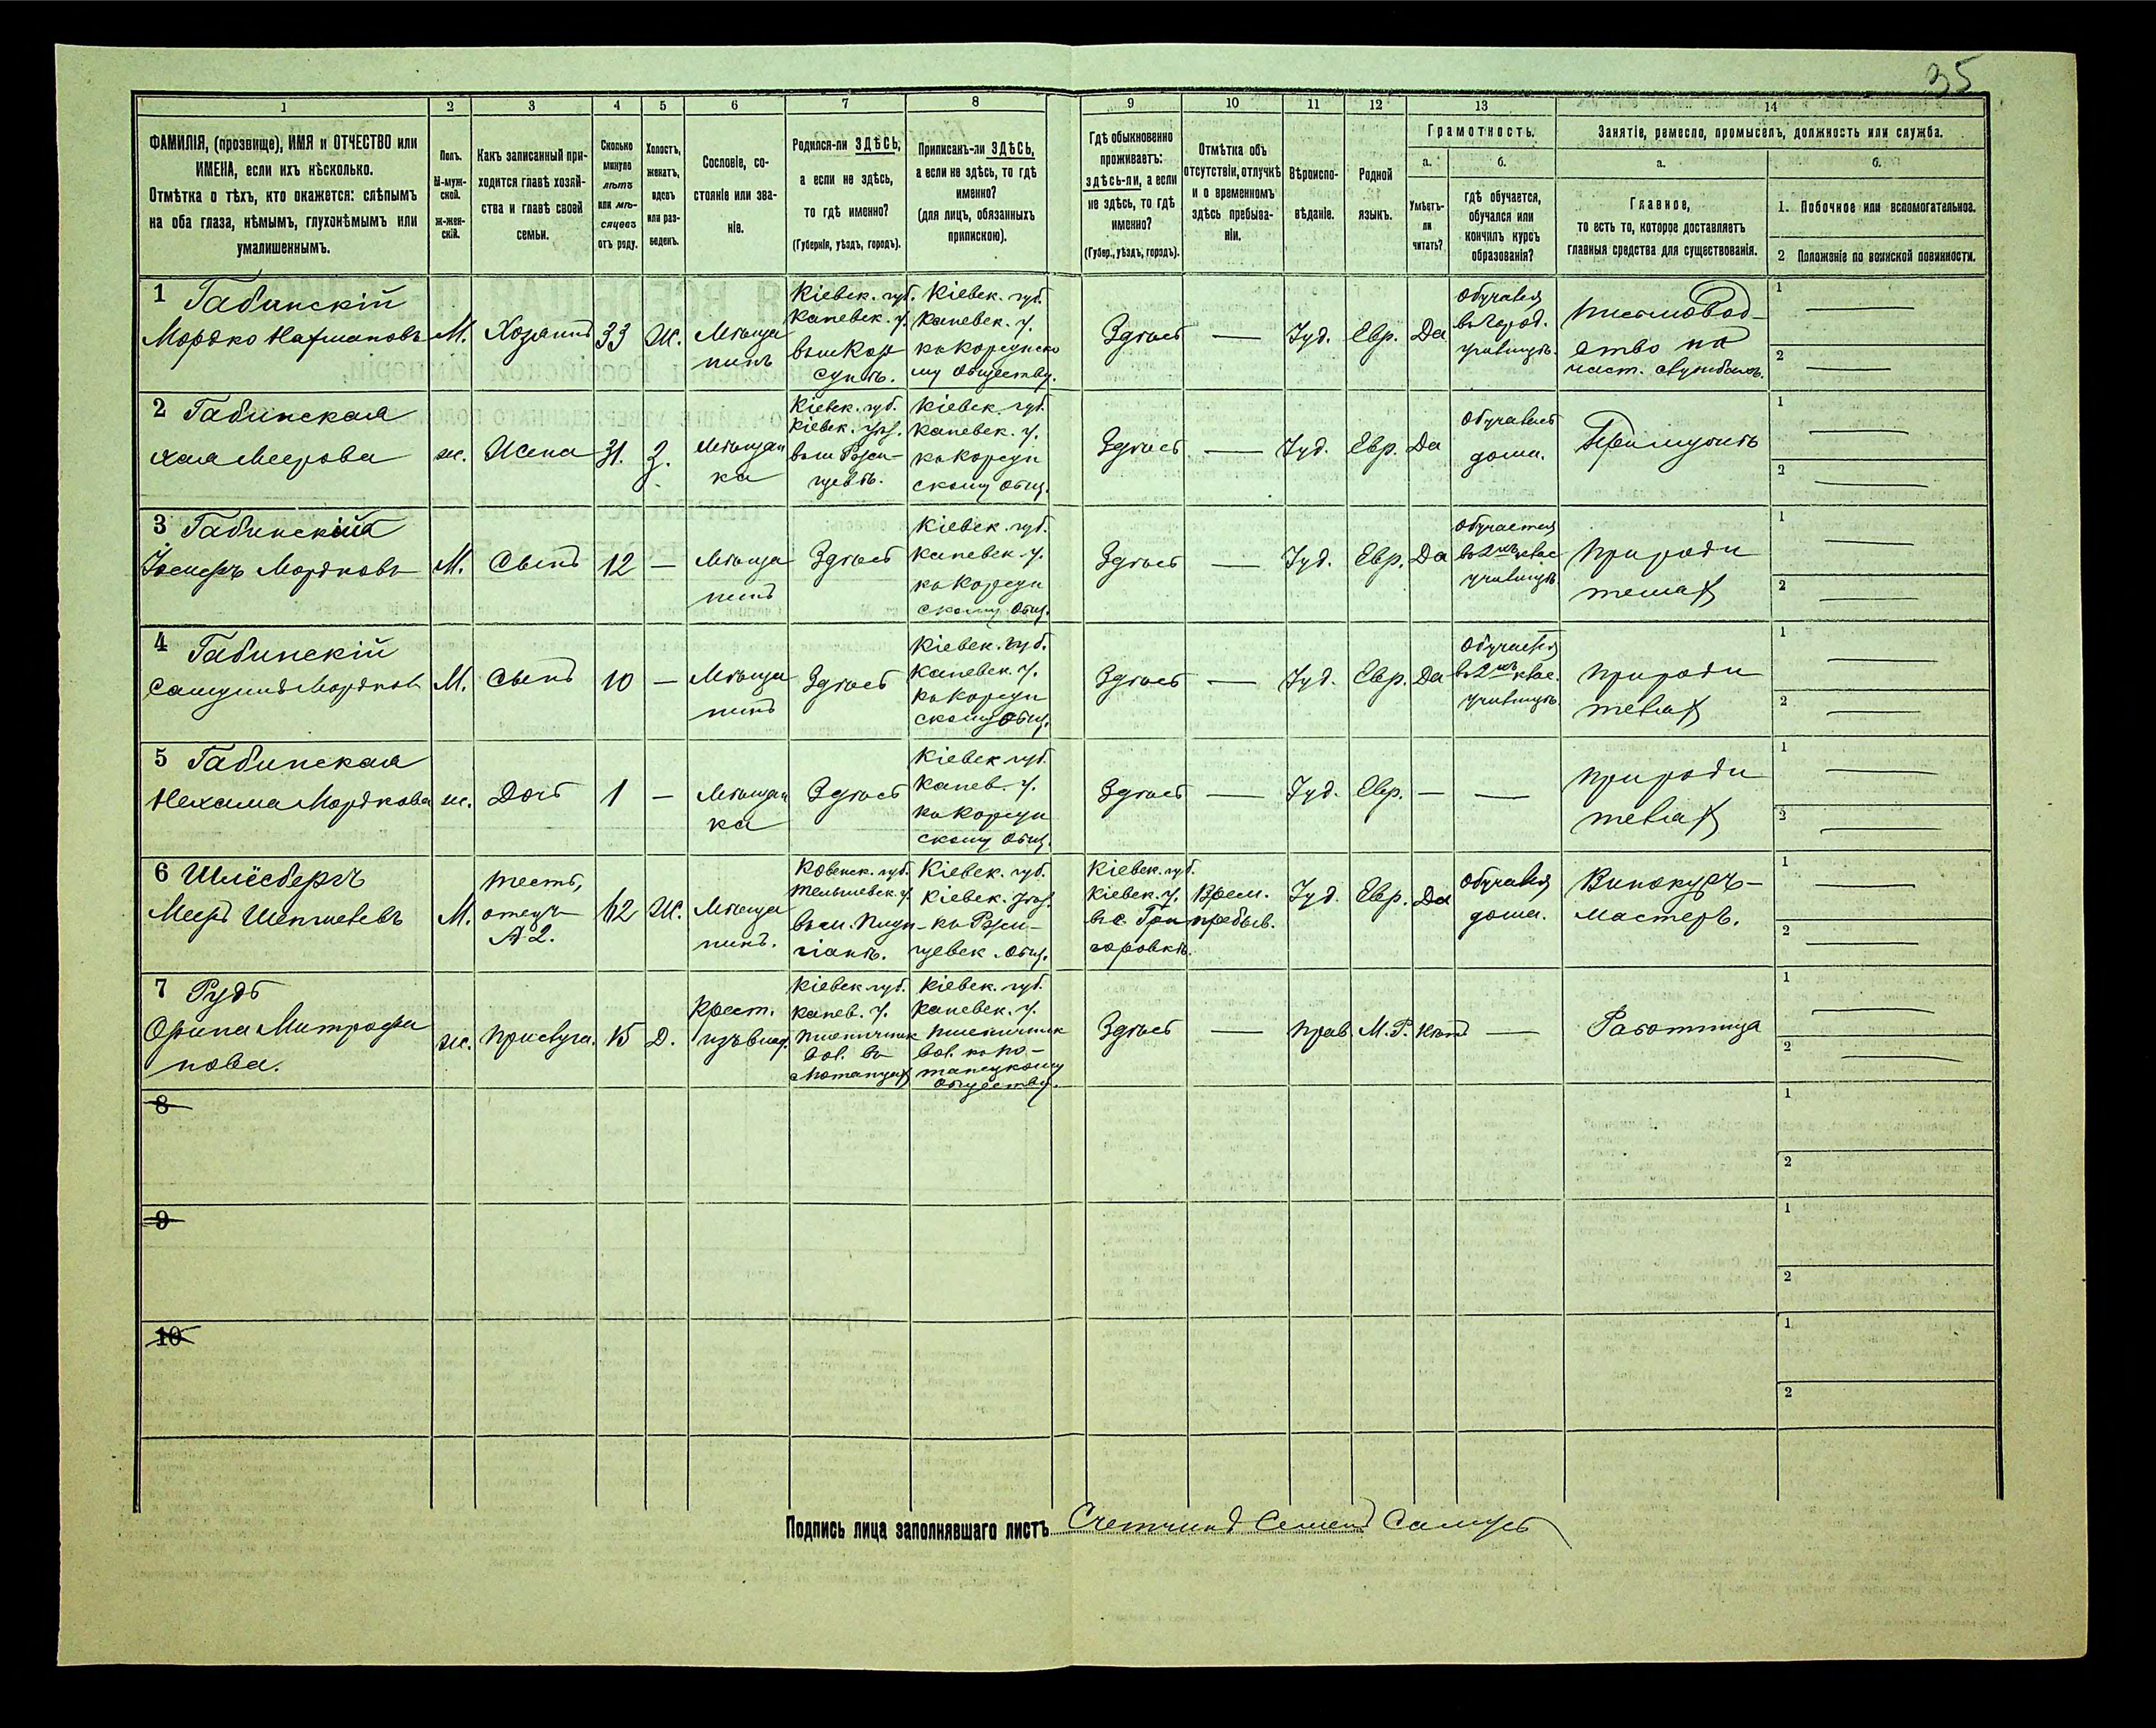 35
1 2 3 4 5 6 7 8 9 10 11 12 13 14
ФАМИЛІЯ, (прозвище), ИМЯ и ОТЧЕСТВО или
ИМЕНА, если ихъ нѣсколько.
Отмѣтка о тѣхъ, кто окажется: слѣпымъ
на оба глаза, нѣмымъ, глухонѣмымъ или
умалишеннымъ.
Полъ.
М-муж-
ской.
ж-жен-
скій.
Какъ записанный при-
ходится главѣ хозяй-
ства и главѣ своей
семьи.
Сколько
минуло
лѣтъ
или мѣ-
сяцевъ
отъ роду.
Холостъ,
женатъ,
вдовъ
или раз-
веденъ.
Сословіе, со-
стояніе или зва-
ніе.
Родился-ли ЗДѢСЬ,
а если не здѣсь,
то гдѣ именно?
(Губернія, уѣздъ, городъ).
Приписанъ-ли ЗДѢСЬ,
а если не здѣсь, то гдѣ
именно?
(для лицъ, обязанныхъ
припискою).
Гдѣ обыкновенно
проживаетъ:
здѣсь-ли, а если
не здѣсь, то гдѣ
именно?
(Губер., уѣздъ, городъ).
Отмѣтка объ
отсутствіи, отлучкѣ
и о временномъ
здѣсь пребыва-
ніи.
Вѣроиспо-
вѣданіе.
Родной
языкъ.
Грамотность.
а.
Умѣетъ-
ли
читать?
б.
гдѣ обучается,
обучался или
кончилъ курсъ
образованія?
Занятіе, ремесло, промыселъ, должность или служба.
а.
Главное,
то есть то, которое доставляетъ
главныя средства для существованія.
б.
1. Побочное или вспомогательное.
2 Положеніе по воинской повинности.
1 Габинскій
Мордко Нахмановъ
М.
Хозяинъ
33
Ж.
Мѣща
нинъ
Кіевск. губ.
Каневск. у.
въ м. Кор
сунѣ.
Кіевск. губ.
Каневск. у.
къ Корсунско
му обществу.
Здѣсь
—
Іуд.
Евр.
Да
Обучался
въ город.
училищѣ.
Письмовод-
ство на
част. службахъ.
1 —
2 —
2 Габинская
Хая Меерова
ж.
Жена
31.
З.
Мѣщан
ка
Кіевск. губ.
Кіевск. уѣз.
въ м. Ржи-
щевѣ.
Кіевск. губ.
Каневск. у.
къ Корсун
скому общ.
Здѣсь
—
Іуд.
Евр.
Да
Обучалась
дома.
При мужѣ
1 —
2 —
3 Габинскій
Іосифъ Мордковъ
М.
Сынъ
12
—
Мѣща
нинъ
Здѣсь
Кіевск. губ.
Каневск. у.
къ Корсун
скому общ.
Здѣсь
—
Іуд.
Евр.
Да
Обучается
въ 2хъ клас.
училищѣ
При роди
теляхъ
1 —
2 —
4 Габинскій
Самуилъ Мордков
М.
Сынъ
10
—
Мѣща
нинъ
Здѣсь
Кіевск. губ.
Каневск. у.
къ Корсун
скому общ.
Здѣсь
—
Іуд.
Евр.
Да
Обучается
въ 2хъ клас.
училищѣ.
При роди
теляхъ
1 —
2 —
5 Габинская
Нехама Мордкова
ж.
Дочь
1
—
Мѣщан
ка
Здѣсь
Кіевск губ.
Канев. у.
къ Корсун
скому общ.
Здѣсь
—
Іуд.
Евр.
—
—
При роди
теляхъ
1 —
2 —
6 Шлёсбергъ
Меер
М.
тесть,
отецъ
№ 2.
62
Ж.
Мѣща
нинъ.
Ковенск. губ.
Тельшевск. у.
въ м. Плун-
гіанъ.
Кіевск. губ.
Кіевск. уѣз.
къ Ржи-
щевск. общ.
Кіевск. губ.
Кіевск. у.
въ с. Гри
горовкѣ.
Врем.
пребыв.
Іуд.
Евр.
Да
Обучался
дома.
Винокуръ-
мастеръ.
1 —
2 —
7 Рудь
Орина Митрофа
нова.
ж.
Прислуга.
15
Д.
Крест.
изъ влад.
Кіевск губ.
Канев. у.
Пшеничник
вол. въ
Потапцахъ
Кіевск. губ.
Каневск. у.
Пшеничник
вол. къ По-
тапецкому
обществу.
Здѣсь
—
Прав.
М. Р.
Нѣтъ
—
Работница
1 —
2 —
8
1
2
9
1
2
10
1
2
Подпись лица заполнявшаго листъ Счетчикъ Семенъ Самусь